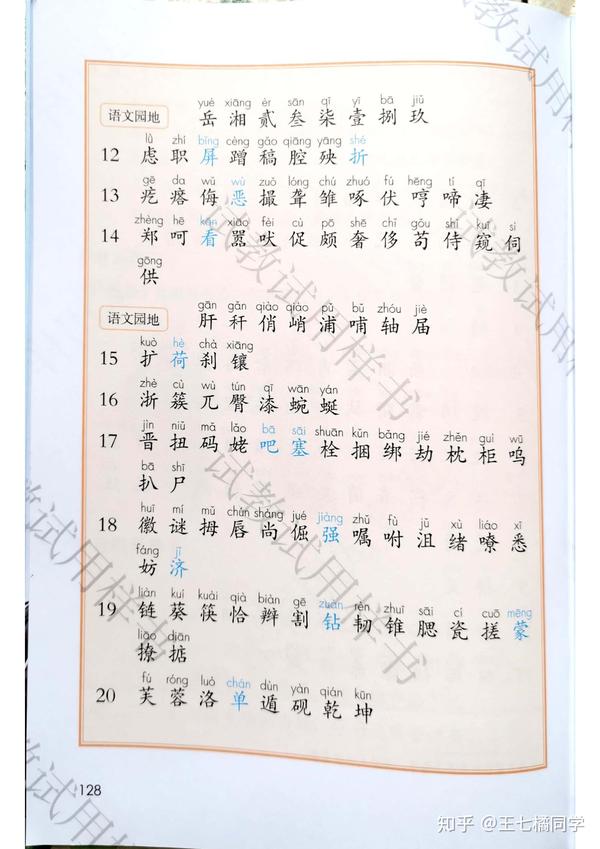 yuè xiāng èr sān qī yī bā jiǔ
语文园地 岳 湘 贰 叁 柒 壹 捌 玖
lǜ zhí bǐng cèng gǎo qiāng yāng shé
12 虑 职 屏 蹭 稿 腔 殃 折
gē da wǔ wù zuǒ lóng chú zhuó fú hēng tí qī
13 疙 瘩 侮 恶 撮 聋 雏 啄 伏 哼 啼 凄
zhèng hē kān xiāo fèi cù pō shē chǐ gǒu shì kuī sì
14 郑 呵 看 嚣 吠 促 颇 奢 侈 苟 侍 窥 伺
gōng
供
gān gǎn qiào qiào pǔ bǔ zhóu jiè
语文园地 肝 秆 俏 峭 浦 哺 轴 届
kuò hè chà xiāng
15 扩 荷 刹 镶
zhè cù wù tún qī wān yán
16 浙 簇 兀 臀 漆 蜿 蜒
jìn niǔ mǎ lǎo bā sāi shuān kǔn bǎng jié zhěn guì wū
17 晋 扭 码 姥 吧 塞 栓 捆 绑 劫 枕 柜 呜
bā shī
扒 尸
huī mí mǔ chún shàng jué jiàng zhǔ fù jǔ xù liáo xī
18 徽 谜 拇 唇 尚 倔 强 嘱 咐 沮 绪 嘹 悉
fáng jǐ
妨 济
liàn kuí kuài qià biàn gē zuàn rèn zhuī sāi cí cuō mēng
19 链 葵 筷 恰 辫 割 钻 韧 锥 腮 瓷 搓 蒙
liáo diān
撩 掂
fú róng luò chán dùn yàn qián kūn
20 芙 蓉 洛 单 遁 砚 乾 坤
128
试教试用样书
试教试用样书
试教试用样书
试教试用样书
知乎 @王七橘同学